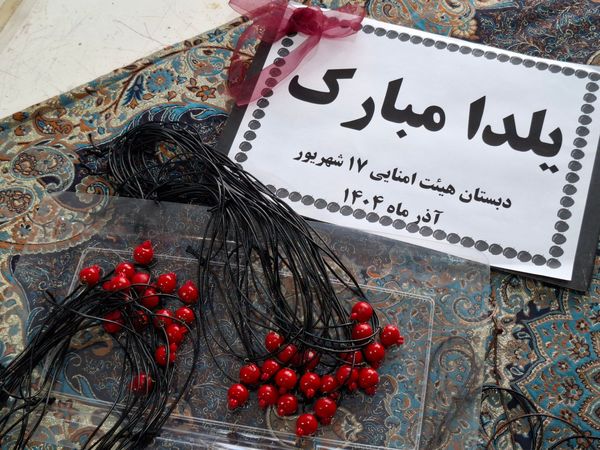 یلدا مبارک
دبستان هیئت امنایی ۱۷ شهریور
آذر ماه ۱۴۰۴